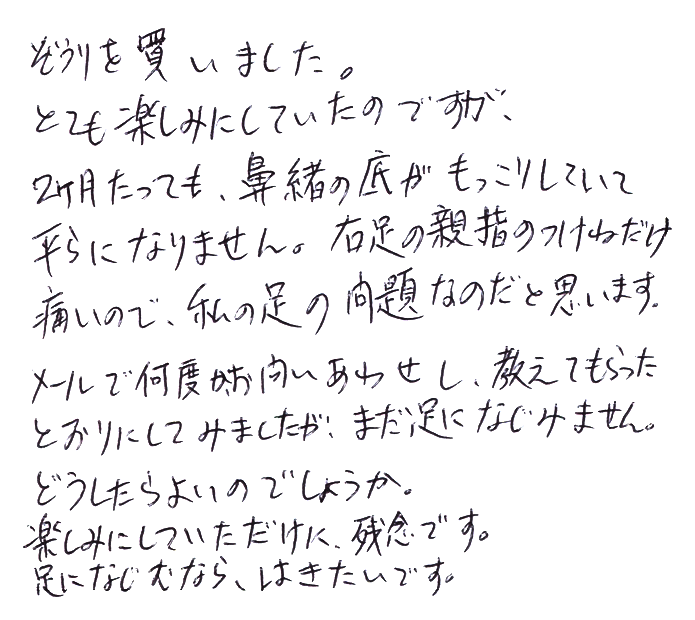 ぞうりを買いました。
とても楽しみにしていたのですが、
2ヶ月たっても、鼻緒の底がもっこりしていて
平らになりません。右足の親指のつけねだけ
痛いので、私の足の問題なのだと思います。
メールで何度かお問いあわせし、教えてもらった
とおりにしてみましたが、まだ足になじみません。
どうしたらよいのでしょうか。
楽しみにしていただけに、残念です。
足になじむなら、はきたいです。